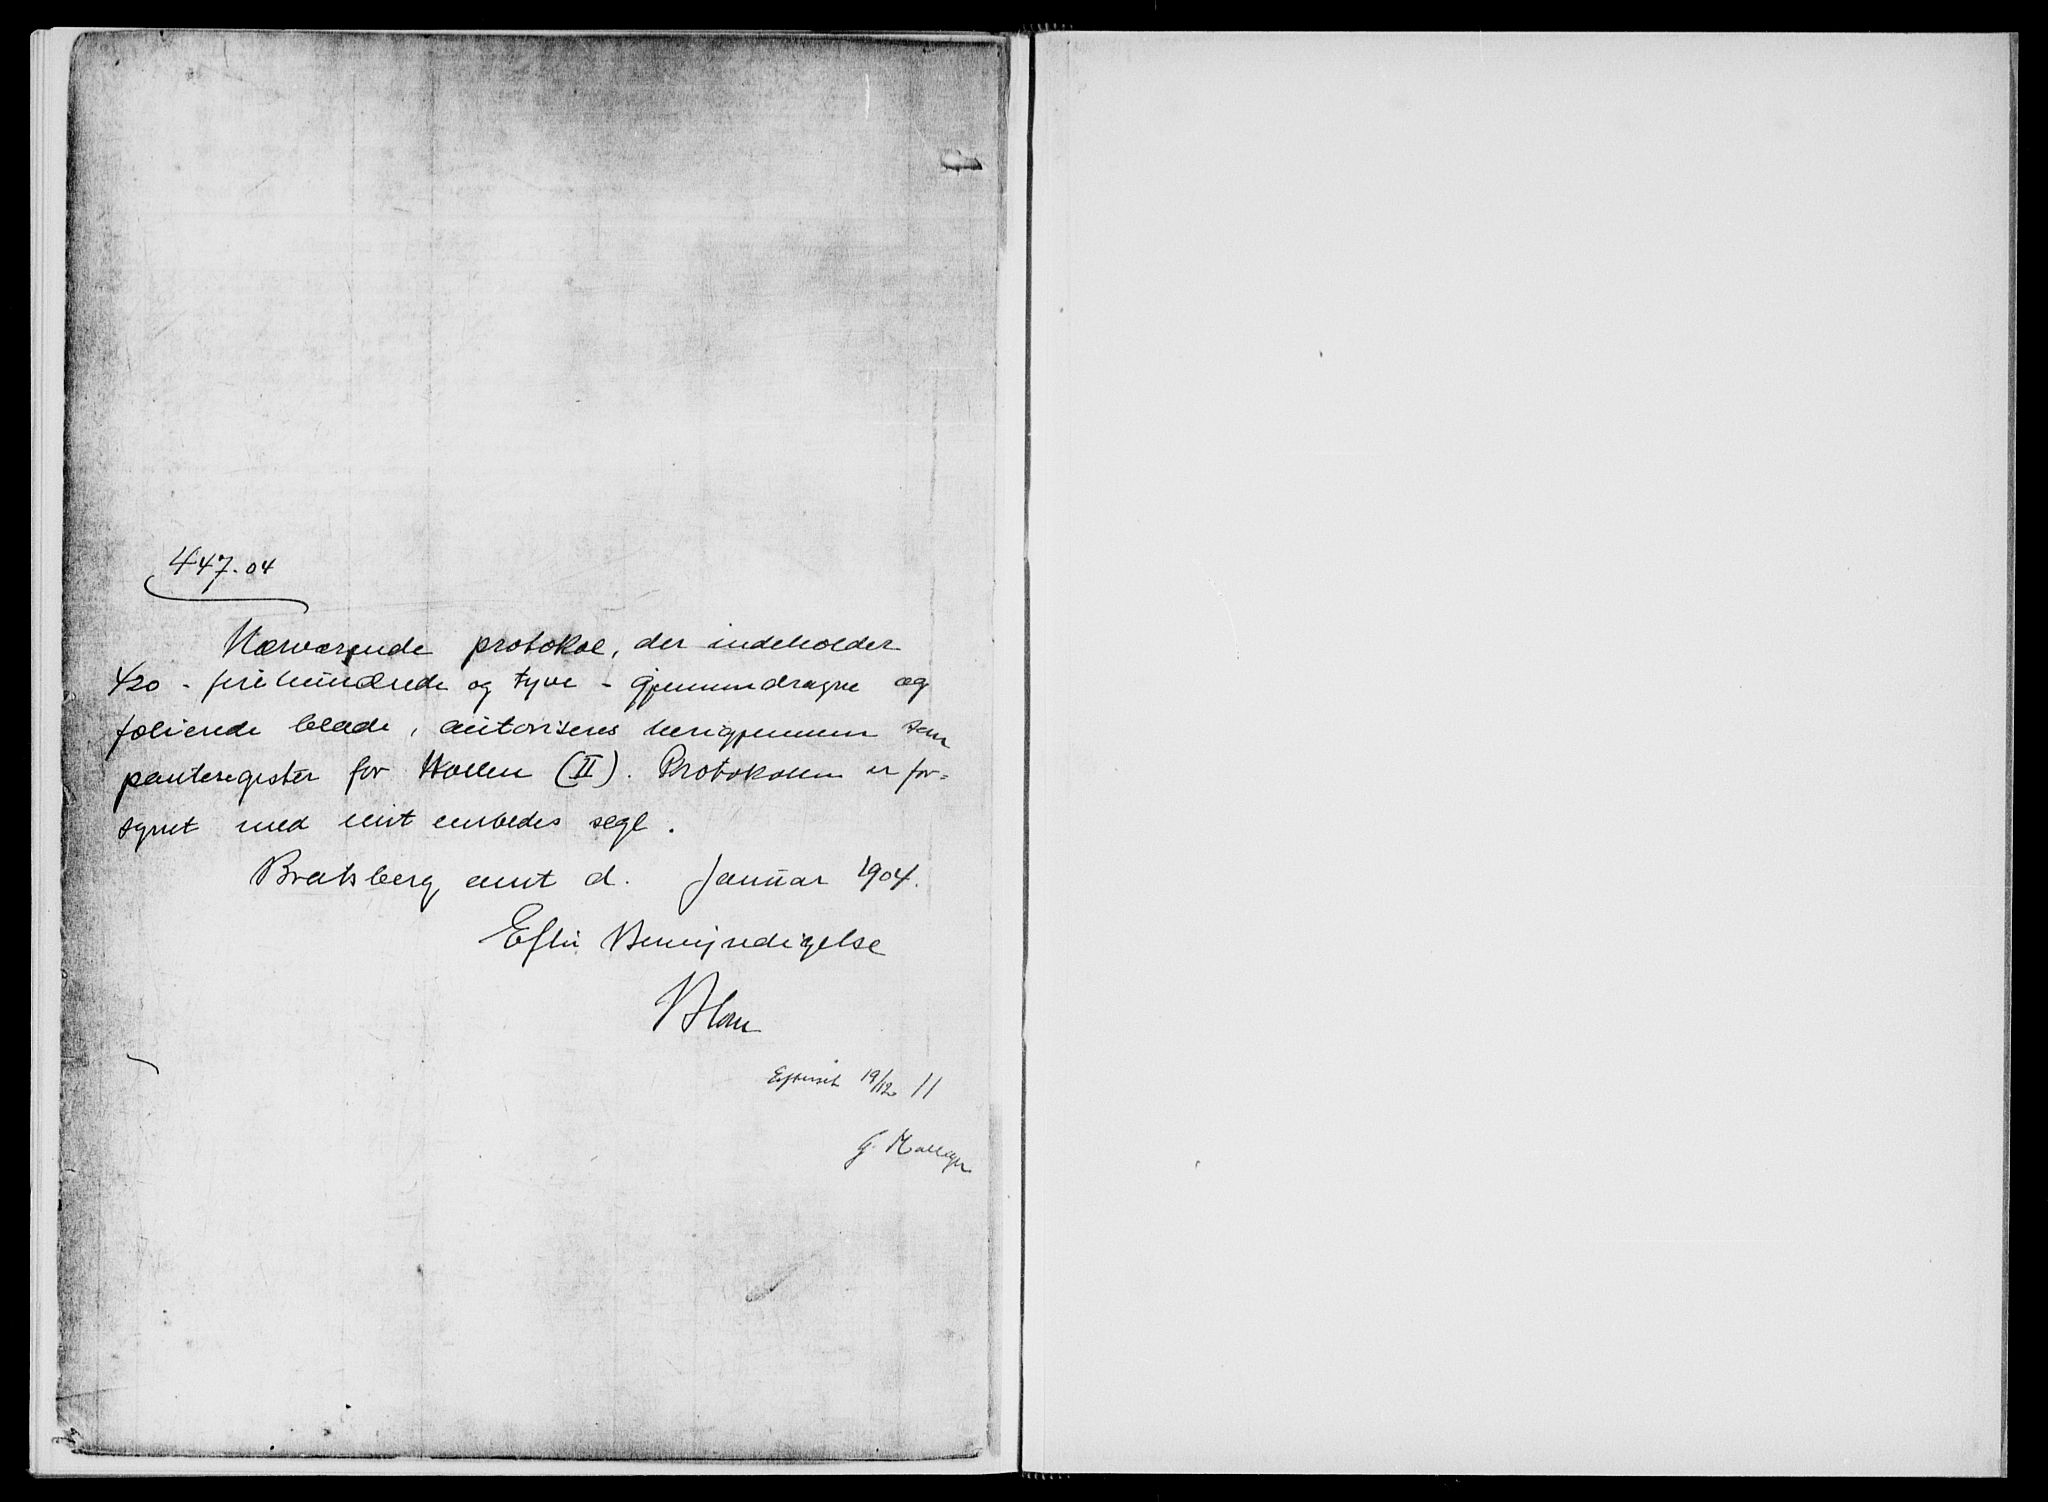 447.04
Nærværende protokol, der indeholder
420 - firehundrede og tyve - gjennemdragne og
folierede blade, autoriseres herigjennem som
panteregister for Hollen (II). Protokollen er for-
synet med mit embedes segl.
Bratsberg amt d. Januar 1904.
Efter Bemyndigelse
Efterset 19/12 11
G.